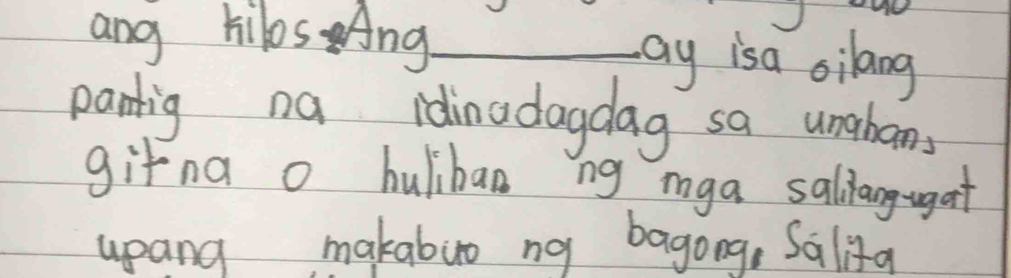 ang kilos. Ang________ay isa oilang
pantig na idinadagdag sa unahan,
gitna o huliban ng mga salitang-ugat
upang makabuo ng bagong, Salita